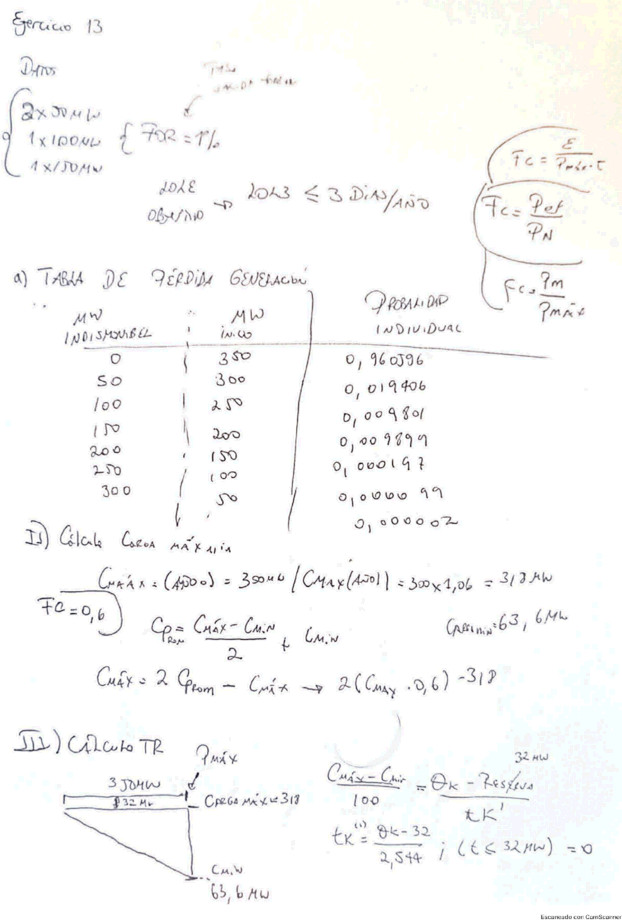 Ejercicio 13
Datos
2x50MW
1x100MW
1x150MW
FOR = 1%
LOLE
OBJETIVO → LOLE ≤ 3 DIAS/AÑO
Fc = E / Pmáx·t
Fc = Pef / PN
Fc = Pm / Pmáx
a) TABLA DE PÉRDIDA GENERACIÓN
MW MW PROBALIDAD
INDIVIDUAL
0 350 0,960596
50 300 0,019406
100 250 0,009801
150 200 0,009899
200 150 0,000197
250 100 0,000099
300 50 0,000002
II) Cálculo CARGA MÁXIMA
CMÁX = (AÑO0) = 350MW / CMAX(AÑO1) = 300x1,06 = 318 MW
FC = 0,6
CPROM = CMÁX - CMIN / 2 + CMIN
= 63,6 MW
CMÁX = 2 CPROM - CMÁX → 2(CMAX · 0,6) - 318
III) CÁLCULO TR
PMÁX
350MW
32 MW
CARGA MÁX = 318
CMIN
63,6 MW
32 MW
CMÁX - CMIN / 100 = θK - RESERVA / tK'
tK(1) = θK - 32 / 2,544 ; (t ≤ 32 MW) = 0
Escaneado con CamScanner